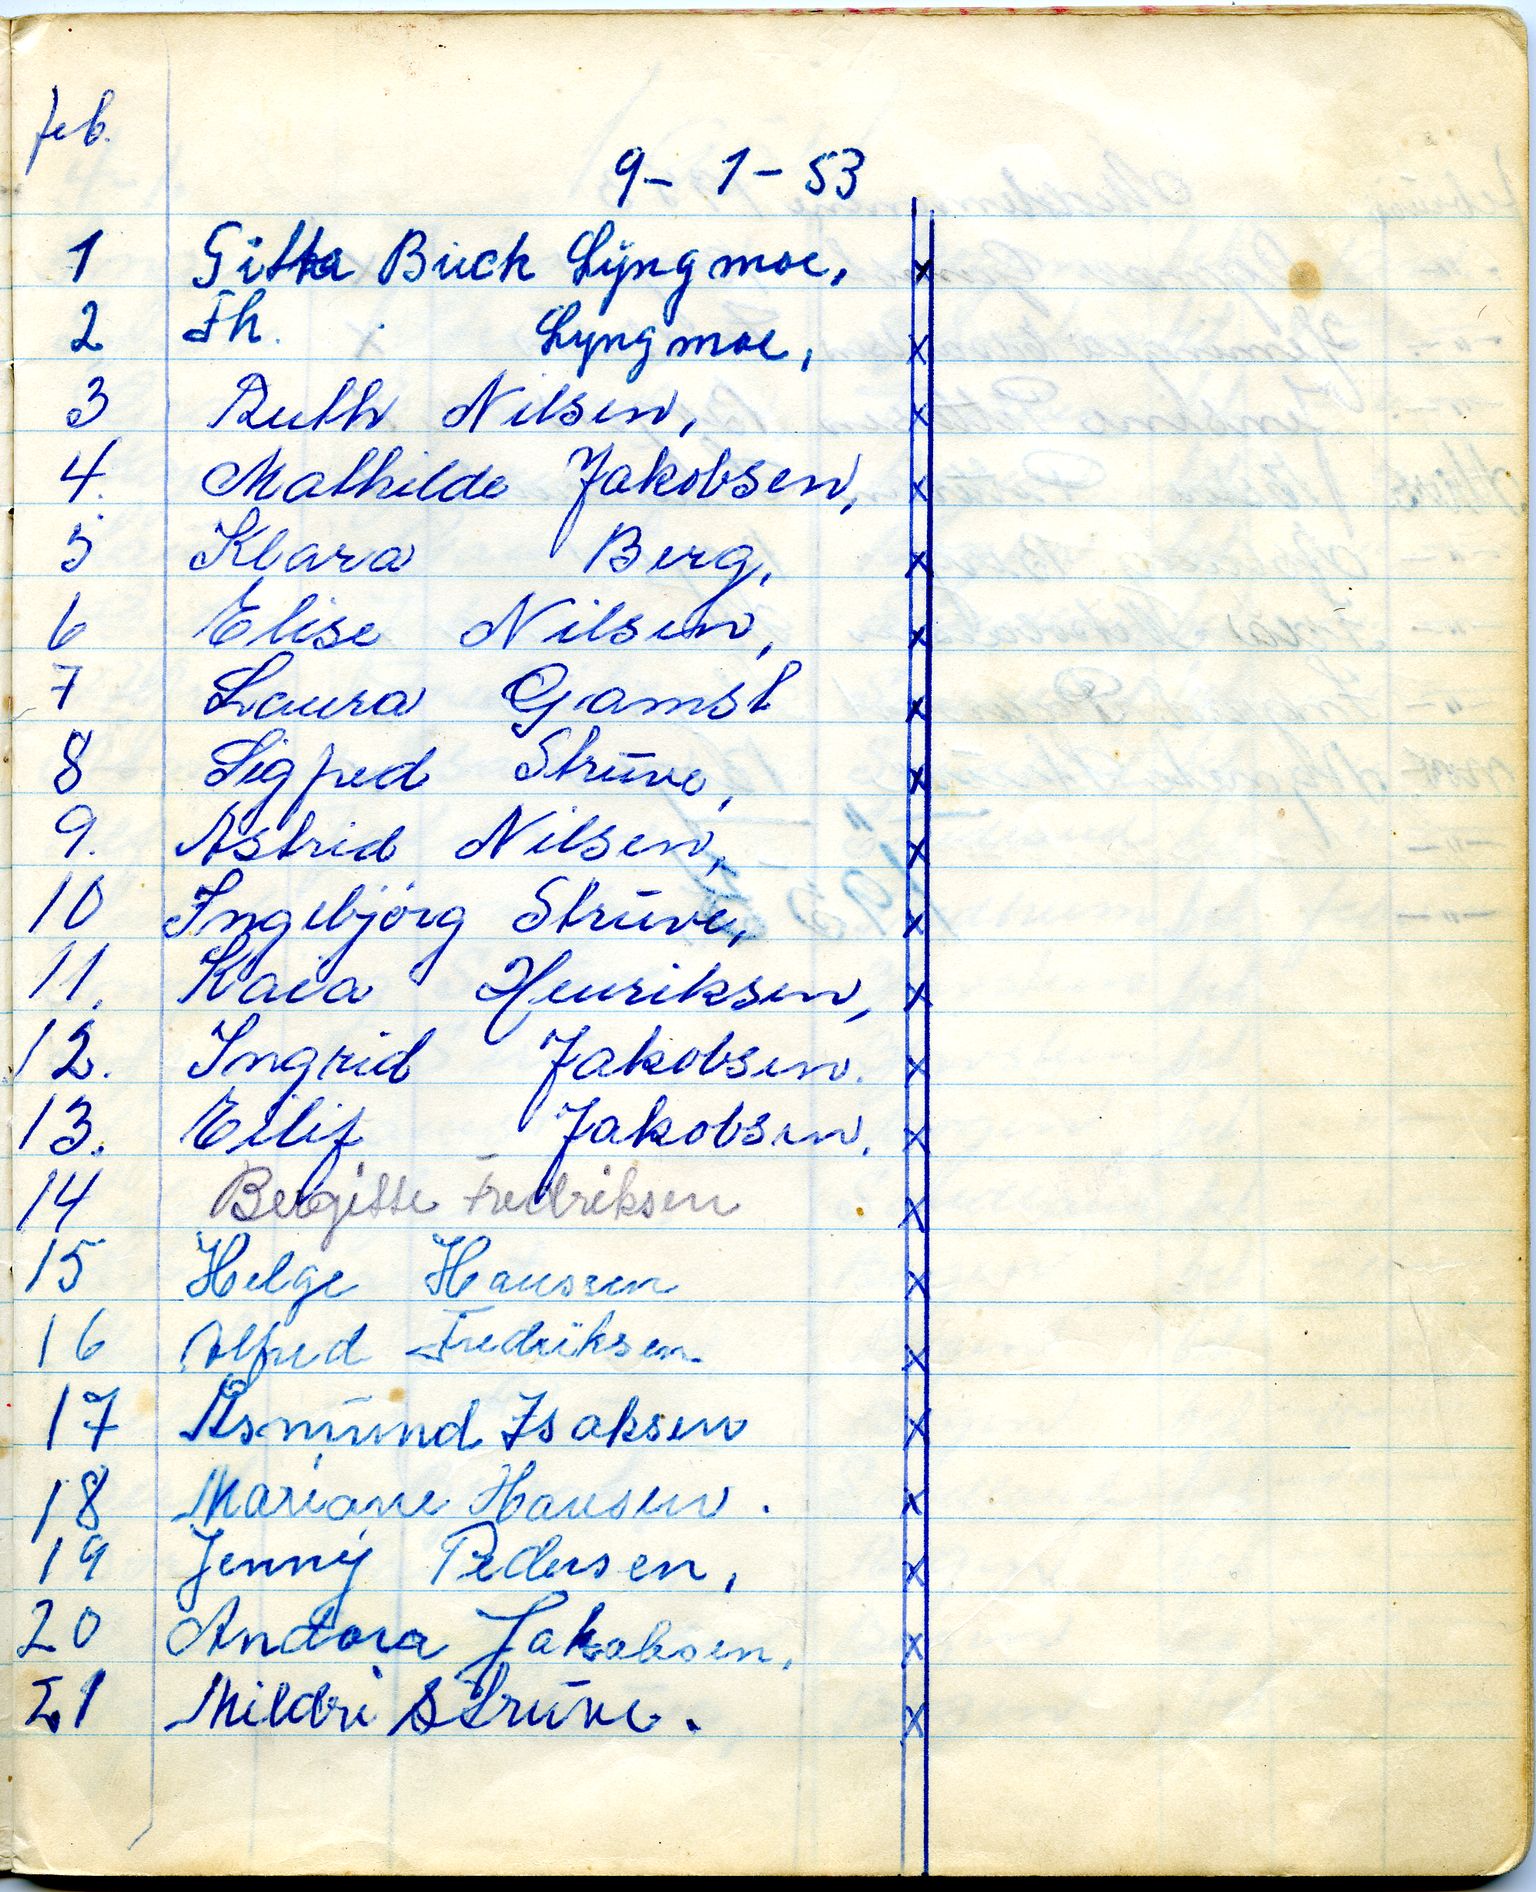 feb.
9- 1- 53
1 Gitta Buck Lyngmoe, x
2 Th. Lyngmoe, x
3 Ruth Nilsen, x
4. Mathilde Jakobsen, x
5 Klara Berg, x
6 Elise Nilsen, x
7 Laura Gamst x
8 Sigfred Strūve, x
9. Astrid Nilsen, x
10 Ingebjørg Strūve, x
11. Kaia Henriksen, x
12. Ingrid Jakobsen. x
13. Eilif Jakobsen, x
14 Bergitte Fredriksen x
15 Helge Hansen x
16 Alfred Fredriksen. x
17 Åsmūnd Isaksen x
18 Mariane Hansen. x
19 Jenny Pedersen, x
20 Andora Jakobsen, x
21 Mildri Strūve. x